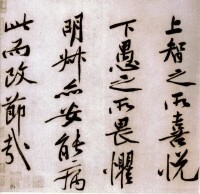 上智之所喜悦
下愚之所畏懼
明妹亦安能病
此而改節哉